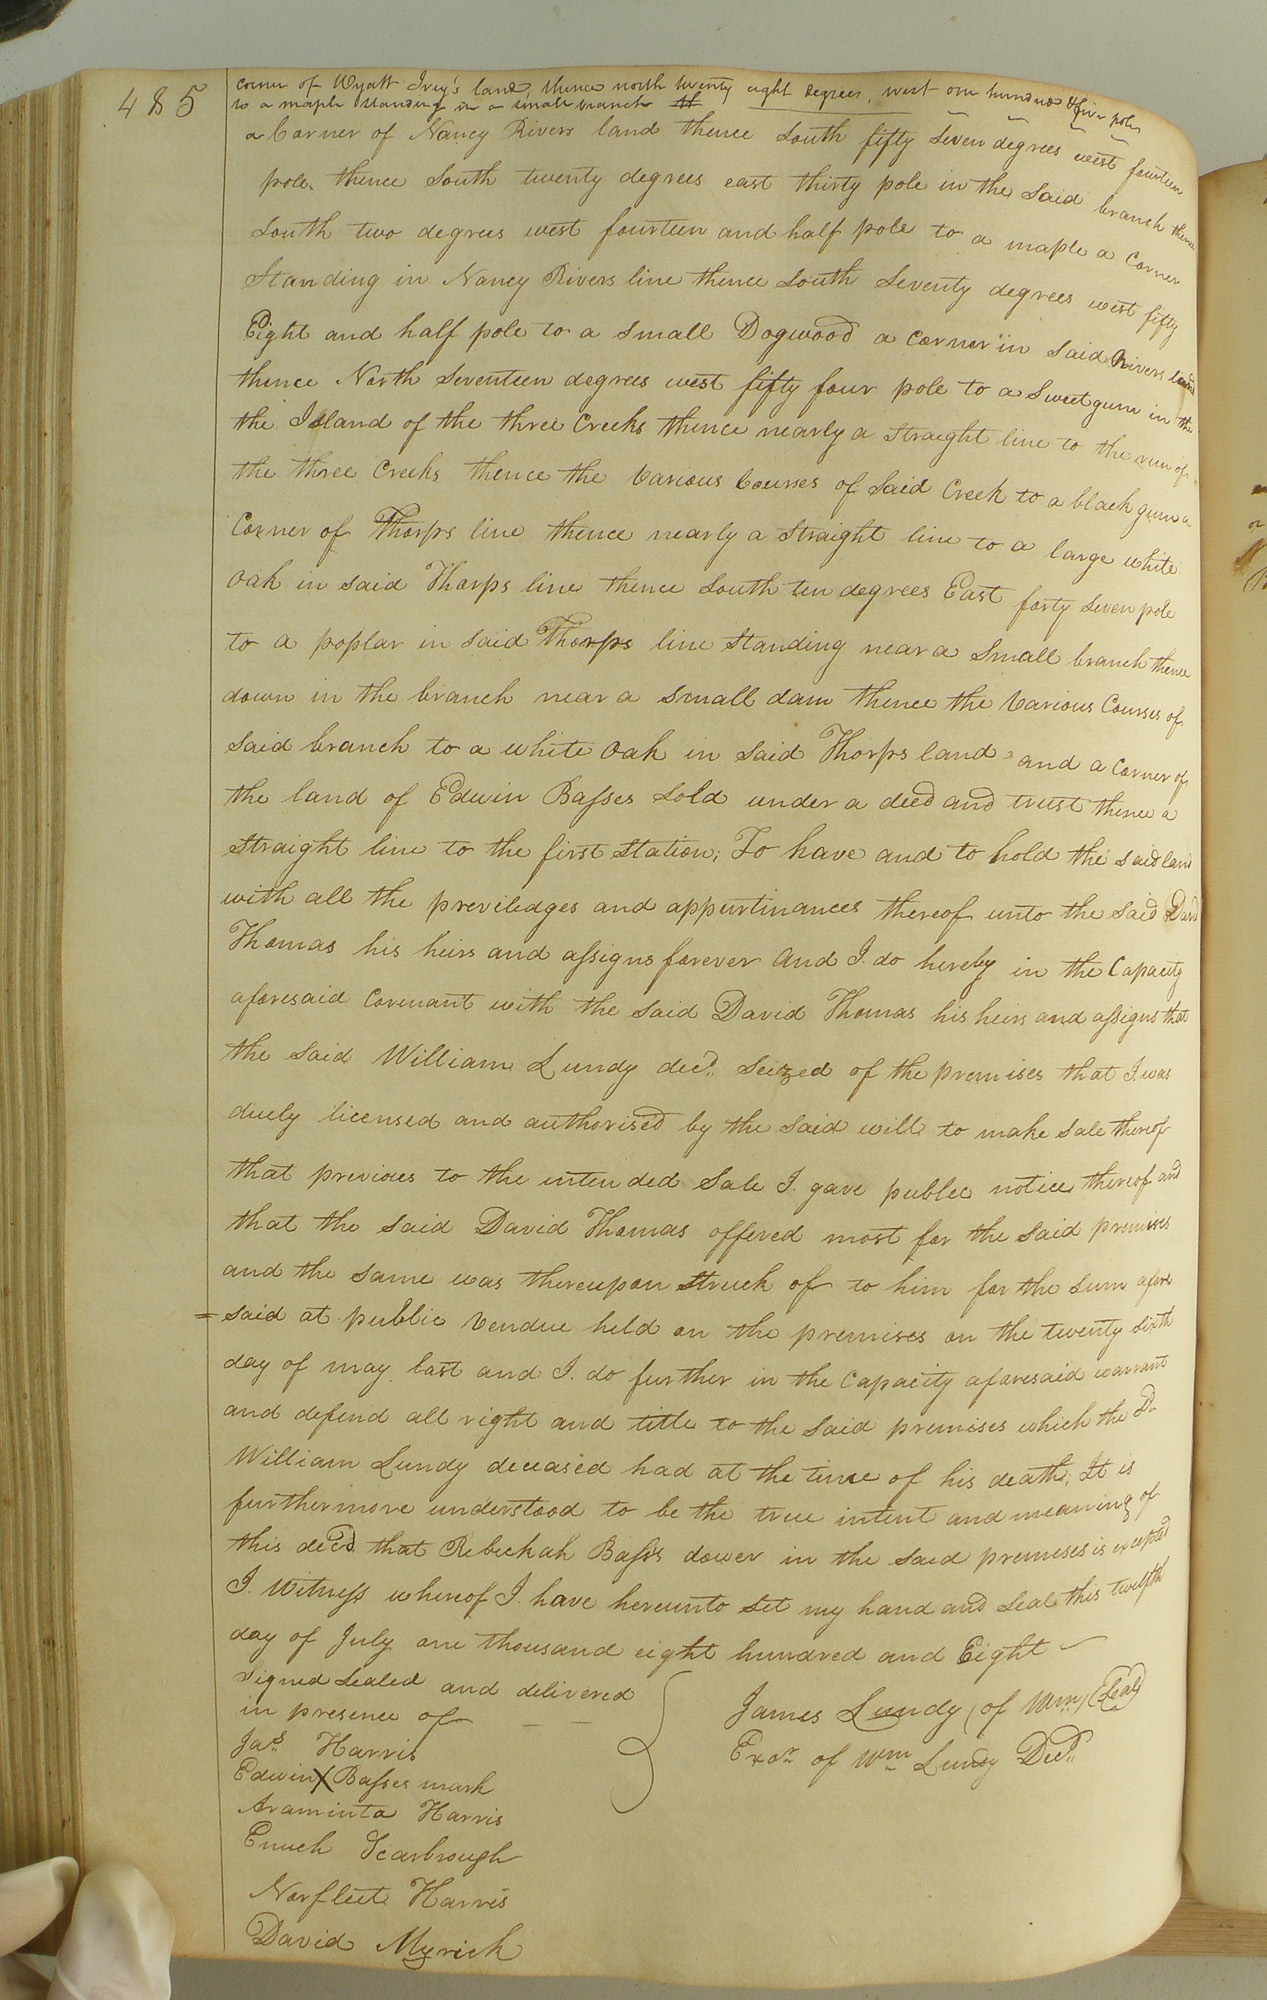 485
corner of Wyatt Ivey's land, thence north twenty eight degrees, west one hundred & five poles
to a maple standing in a small branch
a Corner of Nancy Rivers land thence South fifty Seven degrees west fourteen
pole, thence South twenty degrees east thirty pole in the Said branch thence
South two degrees west fourteen and half pole to a maple a Corner
Standing in Nancy Rivers line thence South Seventy degrees west fifty
Eight and half pole to a Small Dogwood a Corner in Said Rivers land
thence North Seventeen degrees west fifty four pole to a Sweetgum in the
the Island of the three Creeks thence nearly a Straight line to the run of
the three Creeks thence the Various Courses of Said Creek to a black gum a
Corner of Thorps line thence nearly a Straight line to a large white
Oak in said Thorps line thence South ten degrees East forty Seven pole
to a poplar in said Thorps line Standing near a Small branch thence
down in the branch near a small dam thence the Various Courses of
Said branch to a white Oak in Said Thorps land and a Corner of
the land of Edwin Basses Sold under a deed and trust thence a
Straight line to the first Station; To have and to hold the said land
with all the previledges and appurtinances thereof unto the Said David
Thomas his heirs and assigns forever And I. do hereby in the Capacity
aforesaid Covenant with the Said David Thomas his heirs and assigns that
the Said William Lundy decd. Seized of the premises that I. was
duely licensed and authorised by the Said will to make Sale thereof
that previous to the intended Sale I. gave publec notice thereof and
that the Said David Thomas offered most for the Said premises
and the Same was thereupon Struck of to him for the Sum afore
= Said at public Vendue held on the premises on the twenty Sixth
day of may last and I. do further in the Capacity aforesaid warrant
and defend all right and title to the Said premises which the Sd.
William Lundy deceased had at the time of his death; It is
furthermore understood to be the true intent and meaning of
this deed that Rebeckah Bass's dower in the said premises is excepted
I. Witness whereof I. have hereunto Set my hand and Seal this twelfth
day of July one thousand eight hundred and Eight
Signed Sealed and delivered
in presence of
James Lundy (of Wm) (Seal)
Exor. of Wm Lundy Decd.
Jas. Harris
Edwin X Basses mark
Araminta Harris
Enuch Scarbrough
Norfleete Harris
David Myrick